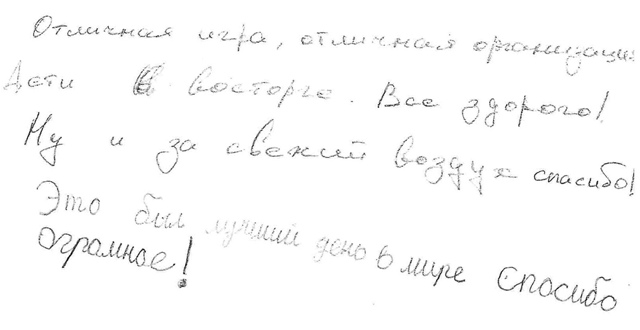 Отличная игра, отличная организация
Дети в восторге. Все здорого!
Ну и за свежий воздух спасибо!
Это был лучший день в мире Спосибо
огромное!